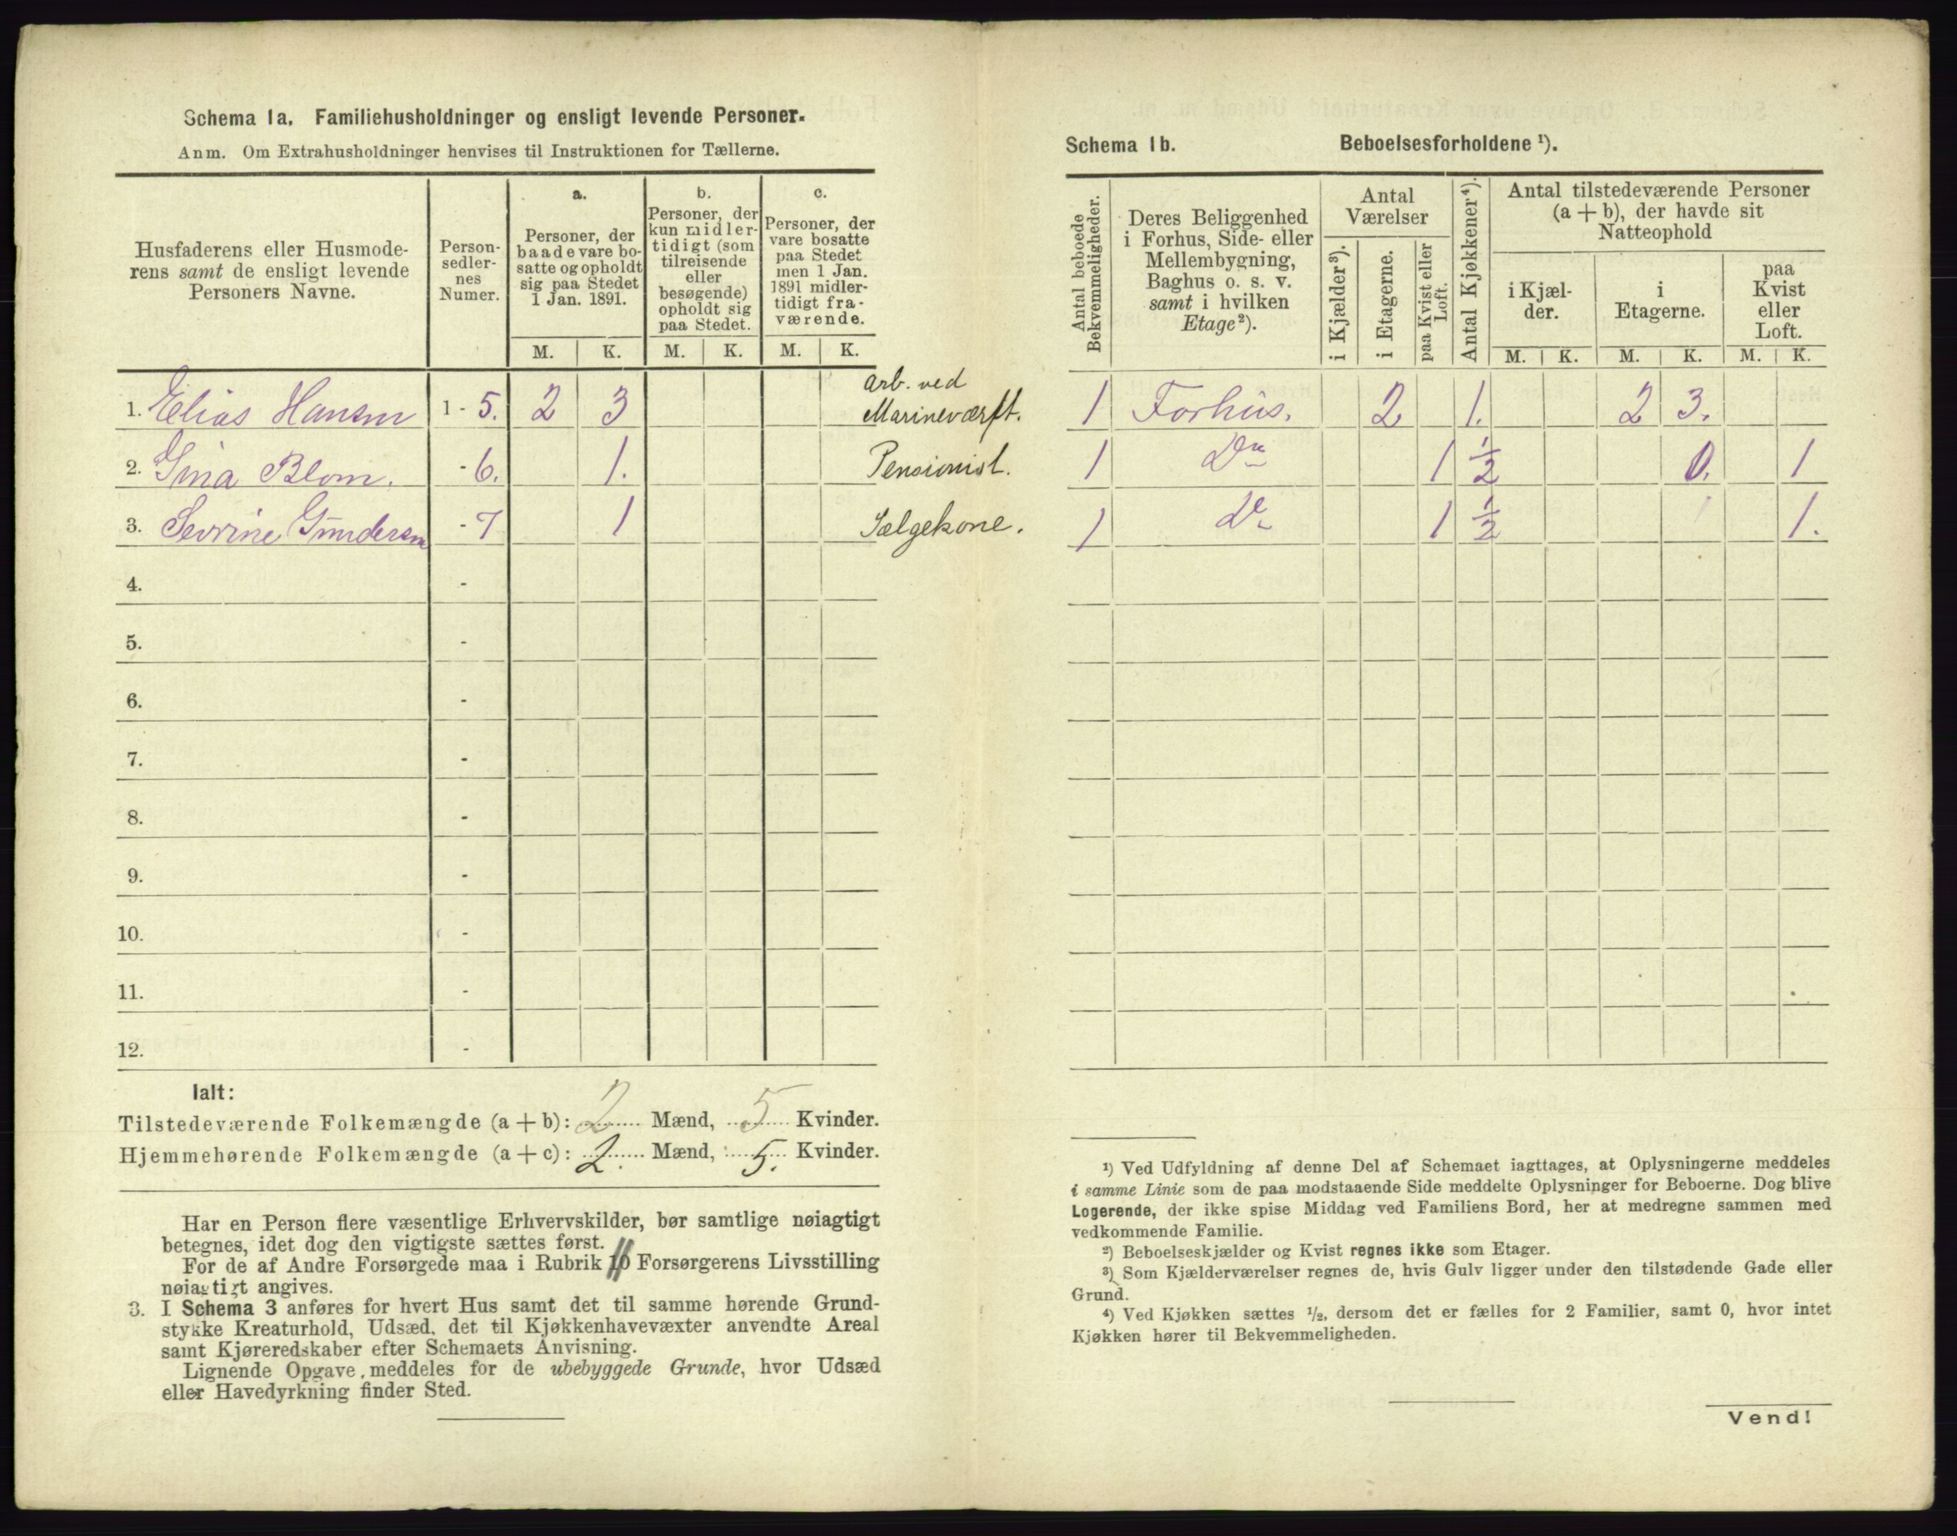 Schema 1a. Familiehusholdninger og ensligt levende Personer.
Anm. Om Extrahusholdninger henvises til Instruktionen for Tællerne.
Husfaderens eller Husmode-
rens samt de ensligt levende
Personers Navne.
Person-
sedler-
nes
Numer.
a.
Personer, der
baade vare bo-
satte og opholdt
sig paa Stedet
1 Jan. 1891.
b.
Personer, der
kun midler-
tidigt (som
tilreisende
eller
besøgende)
opholdt sig
paa Stedet.
c.
Personer, der
vare bosatte
paa Stedet
men 1 Jan.
1891 midler-
tidigt fra-
værende.
M. K. M. K. M. K.
1. Elias Hansen 1 - 5. 2 3 arb. ved
Marineværft.
2. Gina Blom. - 6. 1. Pensionist.
3. Sevrine Gundersen - 7 1 Sælgekone.
4. -
5. -
6. -
7. -
8. -
9. -
10. -
11. -
12. -
Ialt:
Tilstedeværende Folkemængde (a + b): 2 Mænd, 5 Kvinder.
Hjemmehørende Folkemængde (a + c): 2. Mænd, 5. Kvinder.
Har en Person flere væsentlige Erhvervskilder, bør samtlige nøiagtigt
betegnes, idet dog den vigtigste sættes først.
For de af Andre Forsørgede maa i Rubrik 10 Forsørgerens Livsstilling
nøiagtigt angives.
3. I Schema 3 anføres for hvert Hus samt det til samme hørende Grund-
stykke Kreaturhold, Udsæd, det til Kjøkkenhavevæxter anvendte Areal
samt Kjøreredskaber efter Schemaets Anvisning.
Lignende Opgave meddeles for de ubebyggede Grunde, hvor Udsæd
eller Havedyrkning finder Sted.
Schema 1b. Beboelsesforholdene ¹).
Antal beboede
Bekvemmeligheder.
Deres Beliggenhed
i Forhus, Side- eller
Mellembygning,
Baghus o. s. v.
samt i hvilken
Etage ²).
Antal
Værelser
i Kjælder ³).
i Etagerne.
paa Kvist eller
Loft.
Antal Kjøkkener ⁴).
Antal tilstedeværende Personer
(a + b), der havde sit
Natteophold
i Kjæl-
der.
i
Etagerne.
paa
Kvist
eller
Loft.
M. K. M. K. M. K.
1 Forhus. 2 1. 2 3.
1 Do 1 ½ 0. 1
1 Do 1 ½ 1.
¹) Ved Udfyldning af denne Del af Schemaet iagttages, at Oplysningerne meddeles
i samme Linie som de paa modstaaende Side meddelte Oplysninger for Beboerne. Dog blive
Logerende, der ikke spise Middag ved Familiens Bord, her at medregne sammen med
vedkommende Familie.
²) Beboelseskjælder og Kvist regnes ikke som Etager.
³) Som Kjælderværelser regnes de, hvis Gulv ligger under den tilstødende Gade eller
Grund.
⁴) Ved Kjøkken sættes ½, dersom det er fælles for 2 Familier, samt 0, hvor intet
Kjøkken hører til Bekvemmeligheden.
Vend!